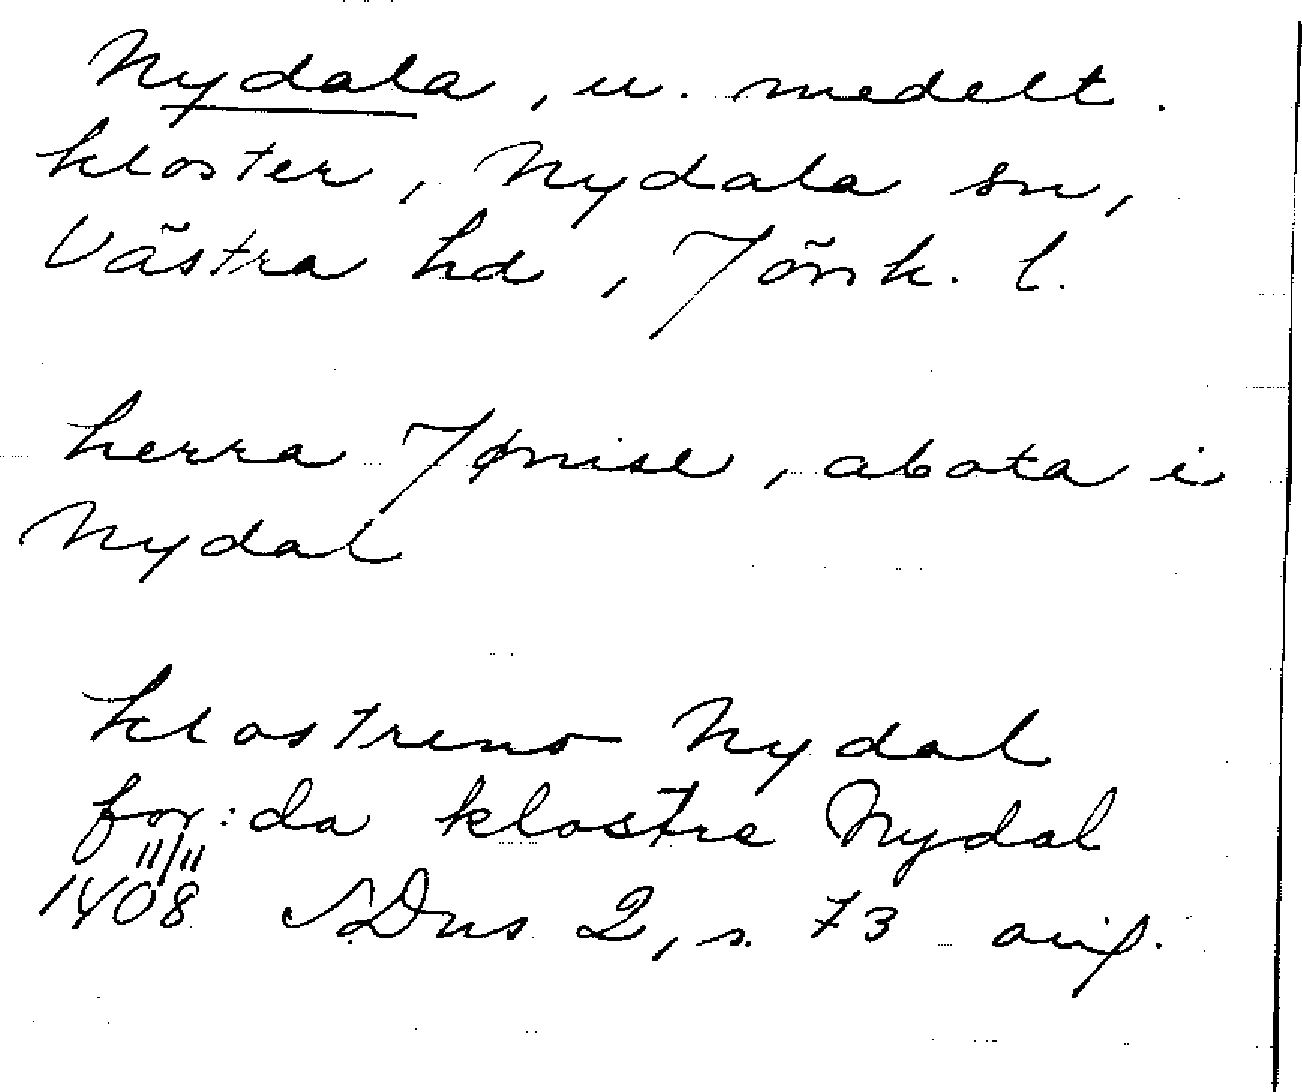 Nydala, u. medelt.
kloster, Nydala sn,
Västra hd, Jönk. l.
herra Jønise, abota i
Nydal
klostreno Nydal
for:da klostre Nydal
11/11
1408 SDns 2, s. 73 avif.